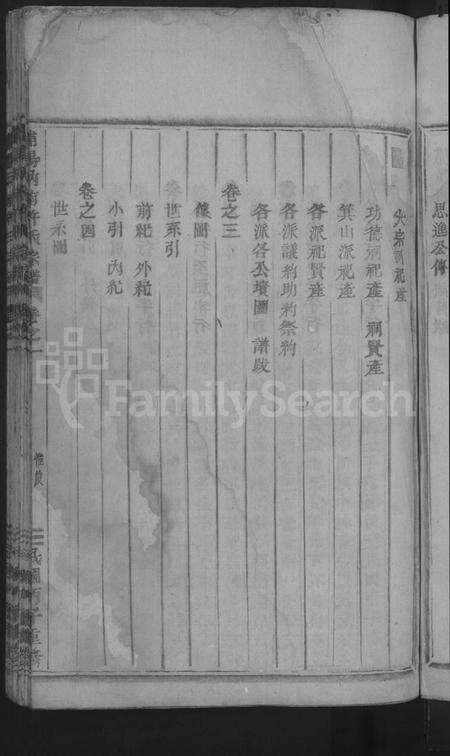 思進公傳
大宗祠祀產
功德祠祀產 祠賢產
箕山派祀產
各派祀賢產
各派議約助約祭約
各派各公墳圖 譜跋
卷之三
像圖
世系引
前紀 外紀
小引 內紀
卷之四
世系圖
民國丙子重修
FamilySearch